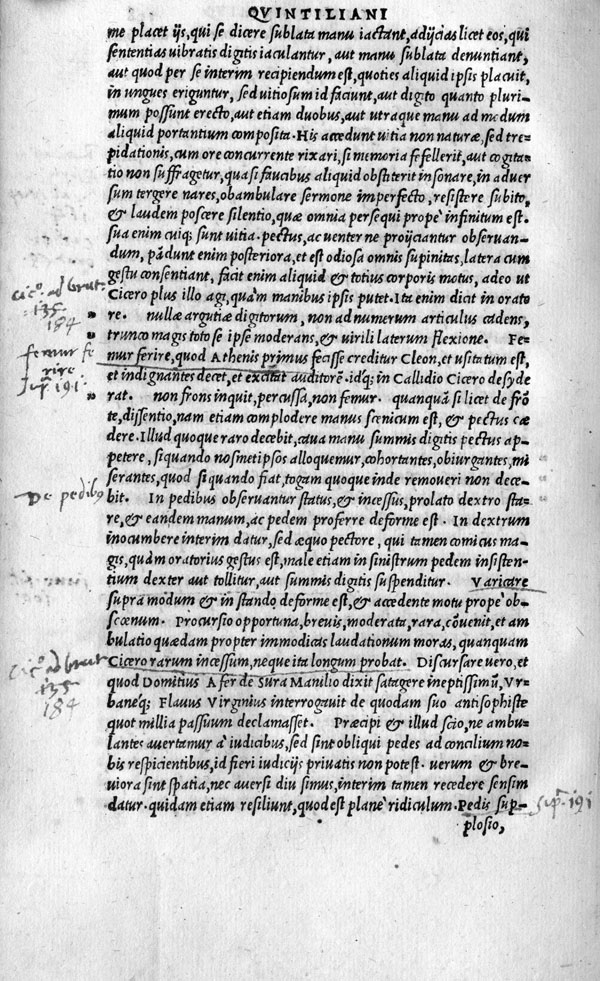 QVINTILIANI
me placet ijs, qui se dicere sublata manu iactant, adijcias licet eos, qui
sententias uibratis digitis iaculantur, aut manu sublata denuntiant,
aut quod per se interim recipiendum est, quoties aliquid ipsis placuit,
in ungues eriguntur, sed uitiosum id faciunt, aut digito quanto pluri-
mum possunt erecto, aut etiam duobus, aut utraque manu ad modum
aliquid portantium composita. His accedunt uitia non naturæ, sed tre-
pidationis, cum ore concurrente rixari, si memoria fefellerit, aut cogita-
tio non suffragetur, quasi faucibus aliquid obstiterit insonare, in aduer
sum tergere nares, obambulare sermone imperfecto, resistere subito,
& laudem poscere silentio, quæ omnia persequi propè infinitum est.
sua enim cuiq; sunt uitia. pectus, ac uenter ne proijciantur obseruan-
dum, pãdunt enim posteriora, et est odiosa omnis supinitas, latera cum
gestu consentiant, facit enim aliquid & totius corporis motus, adeo ut
Cicero plus illo agi, quàm manibus ipsis putet. Ita enim dicit in orato
re. nullæ argutiæ digitorum, non ad numerum articulus cadens,
trunco magis toto se ipse moderans, & uirili laterum flexione. Fe-
mur ferire, quod Athenis primus fecisse creditur Cleon, et usitatum est,
et indignantes decet, et excitat auditorẽ. idq; in Callidio Cicero desyde
rat. non frons inquit, percussa, non femur. quanquã si licet de frõ
te, dissentio, nam etiam complodere manus scœnicum est, & pectus cæ
dere. Illud quoque raro decebit, caua manu summis digitis pectus ap-
petere, siquando nosmetipsos alloquemur, cohortantes, obiurgantes, mi
serantes, quod siquando fiat, togam quoque inde remoueri non dece-
bit. In pedibus obseruantur status, & incessus, prolato dextro sta-
re, & eandem manum, ac pedem proferre deforme est. In dextrum
incumbere interim datur, sed æquo pectore, qui tamen comicus ma-
gis, quàm oratorius gestus est, male etiam in sinistrum pedem insisten-
tium dexter aut tollitur, aut summis digitis suspenditur. Varicare
supra modum & in stando deforme est, & accedente motu propè ob-
scœnum. Procursio opportuna, breuis, moderata, rara, cõuenit, et am
bulatio quædam propter immodicas laudationum moras, quanquam
Cicero rarum incessum, neque ita longum probat. Discursare uero, et
quod Domitius Afer de Sura Manilio dixit satagere ineptissimũ, Vr-
baneq; Flauus Virginius interrogauit de quodam suo antisophiste
quot millia passuum declamasset. Præcipi & illud scio, ne ambu-
lantes auertamur à iudicibus, sed sint obliqui pedes ad concilium no-
bis respicientibus, id fieri iudicijs priuatis non potest. uerum & bre-
uiora sint spatia, nec auersi diu simus, interim tamen recedere sensim
datur. quidam etiam resiliunt, quod est planè ridiculum. Pedis sup-
plosio,
cico. ad brut.
135
184
femur fe
rire
sup. 191.
De pedibus
cico. ad brut
135
184
sup. 191